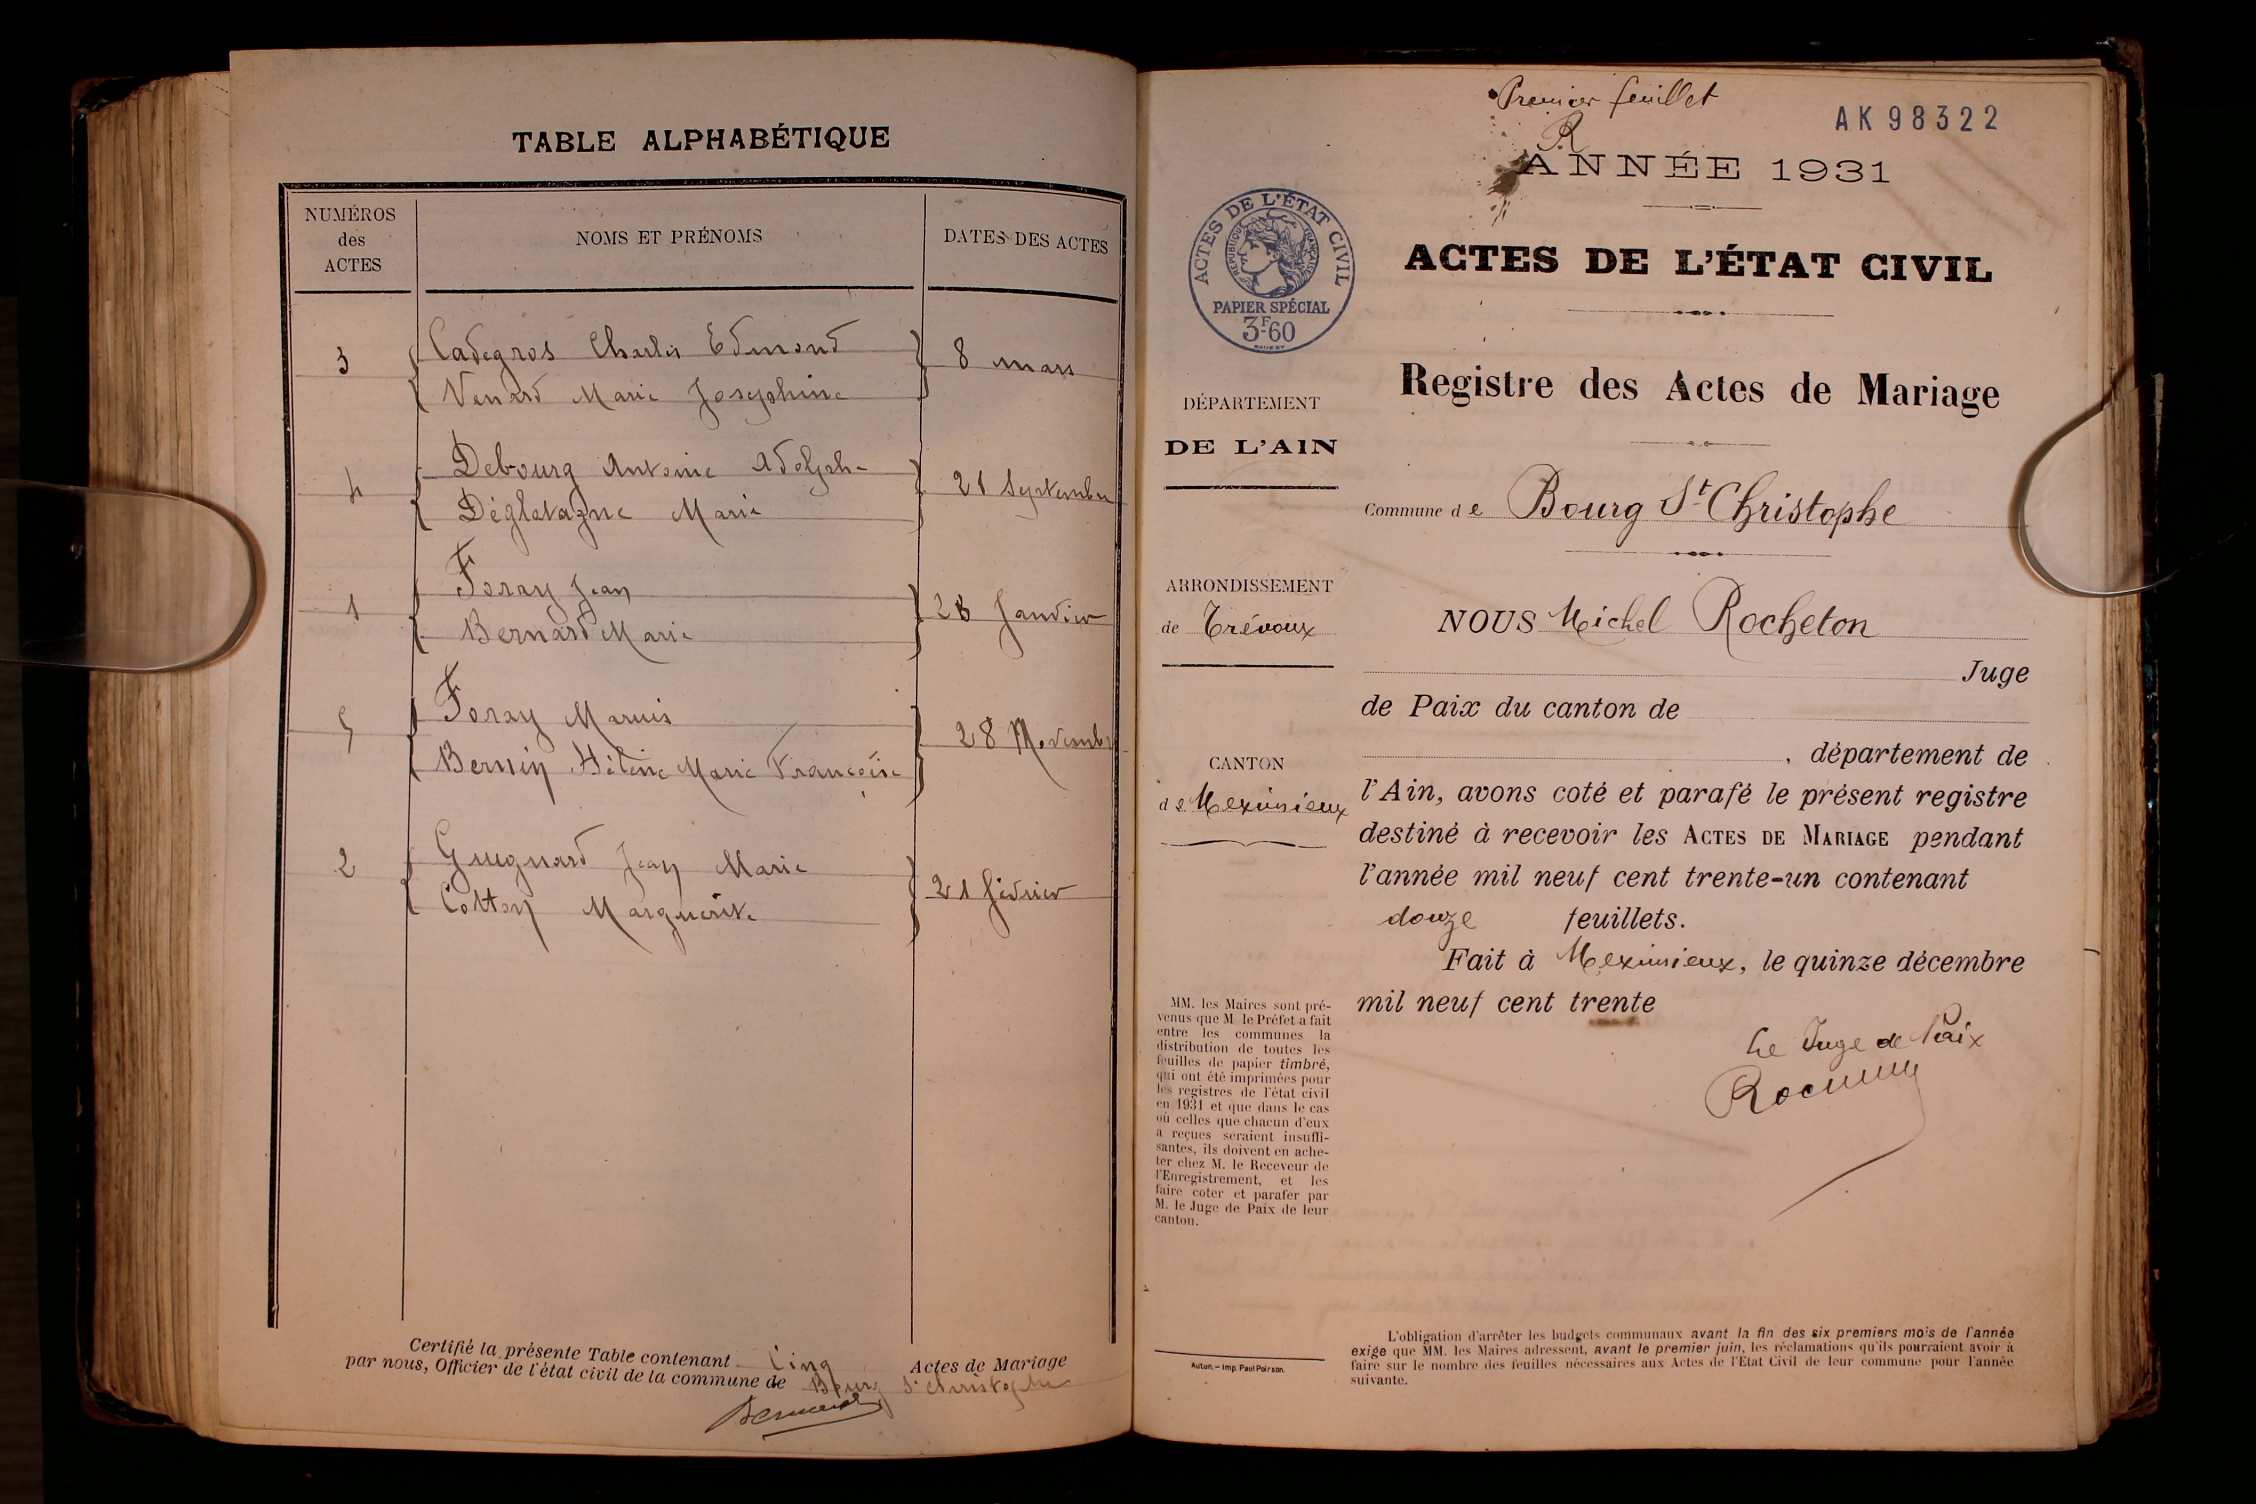 TABLE ALPHABÉTIQUE
NUMÉROS
des
ACTES
NOMS ET PRÉNOMS
DATES DES ACTES
3
Cadegros Charles Edmond
Venard Marie Josephine
8 mars
4
Debourg Antoine Adolphe
Marie
21 Septembre
1
Foray Jean
Bernard Marie
28 Janvier
5
Foray Marius
Bernin Hélène Marie Françoise
28 Novembre
2
Guignard Jean Marie
Cotton Marguerite
21 février
Certifié la présente Table contenant Cinq Actes de Mariage
par nous, Officier de l'état civil de la commune de Bourg St Christophe
Premier feuillet
AK 98322
R
ANNÉE 1931
ACTES DE L'ÉTAT CIVIL
RÉPUBLIQUE FRANÇAISE
PAPIER SPÉCIAL
3F60
ACTES DE L'ÉTAT CIVIL
Registre des Actes de Mariage
DÉPARTEMENT
DE L'AIN
Commune de Bourg St Christophe
ARRONDISSEMENT
de Trévoux
CANTON
de Meximieux
NOUS Michel Rocheton
Juge
de Paix du canton de
, département de
l'Ain, avons coté et parafé le présent registre
destiné à recevoir les ACTES DE MARIAGE pendant
l'année mil neuf cent trente-un contenant
douze feuillets.
Fait à Meximieux, le quinze décembre
mil neuf cent trente
Le Juge de Paix
MM. les Maires sont pré-
venus que M. le Préfet a fait
entre les communes la
distribution de toutes les
feuilles de papier timbré,
qui ont été imprimées pour
les registres de l'état civil
en 1931 et que dans le cas
où celles que chacun d'eux
a reçues seraient insuffi-
santes, ils doivent en ache-
ter chez M. le Receveur de
l'Enregistrement, et les
faire coter et parafer par
M. le Juge de Paix de leur
canton.
Autun. – Imp. Paul Poirson.
L'obligation d'arrêter les budgets communaux avant la fin des six premiers mois de l'année
exige que MM. les Maires adressent, avant le premier juin, les réclamations qu'ils pourraient avoir à
faire sur le nombre des feuilles nécessaires aux Actes de l'Etat Civil de leur commune pour l'année
suivante.